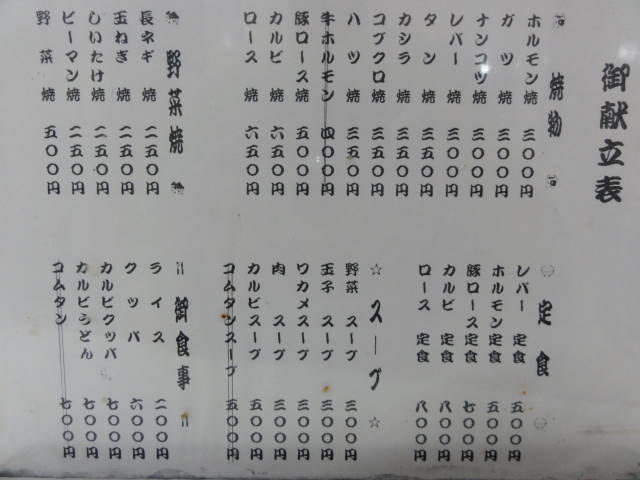 御献立表
焼物
ホルモン焼 三〇〇円
ガツ焼 三〇〇円
ナンコツ焼 三〇〇円
レバー焼 三〇〇円
タン焼 三五〇円
カシラ焼 三五〇円
コブクロ焼 三五〇円
ハツ焼 三五〇円
牛ホルモン 四〇〇円
豚ロース焼 五〇〇円
カルビ焼 六五〇円
ロース焼 六五〇円
野菜焼
長ネギ焼 二五〇円
玉ねぎ焼 二五〇円
しいたけ焼 二五〇円
ピーマン焼 二五〇円
野菜焼 五〇〇円
定食
レバー定食 五〇〇円
ホルモン定食 五〇〇円
豚ロース定食 七〇〇円
カルビ定食 八〇〇円
ロース定食 八〇〇円
☆スープ☆
野菜スープ 三〇〇円
玉子スープ 三〇〇円
ワカメスープ 三〇〇円
肉スープ 三〇〇円
カルビスープ 五〇〇円
コムタンスープ 五〇〇円
御食事
ライス 二〇〇円
クッパ 六〇〇円
カルビクッパ 七〇〇円
カルビうどん 七〇〇円
コムタン 七〇〇円